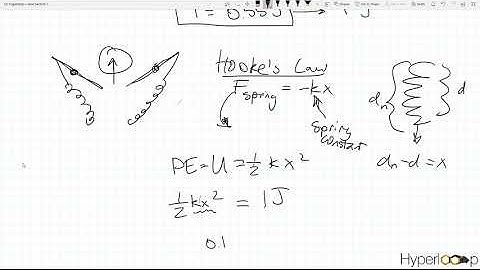 1 J
Hooke's Law
Fspring = -kx
spring
constant
dn
d
dn-d=x
PE=U=½kx²
½kx² = 1J
0.1
Hyperloop